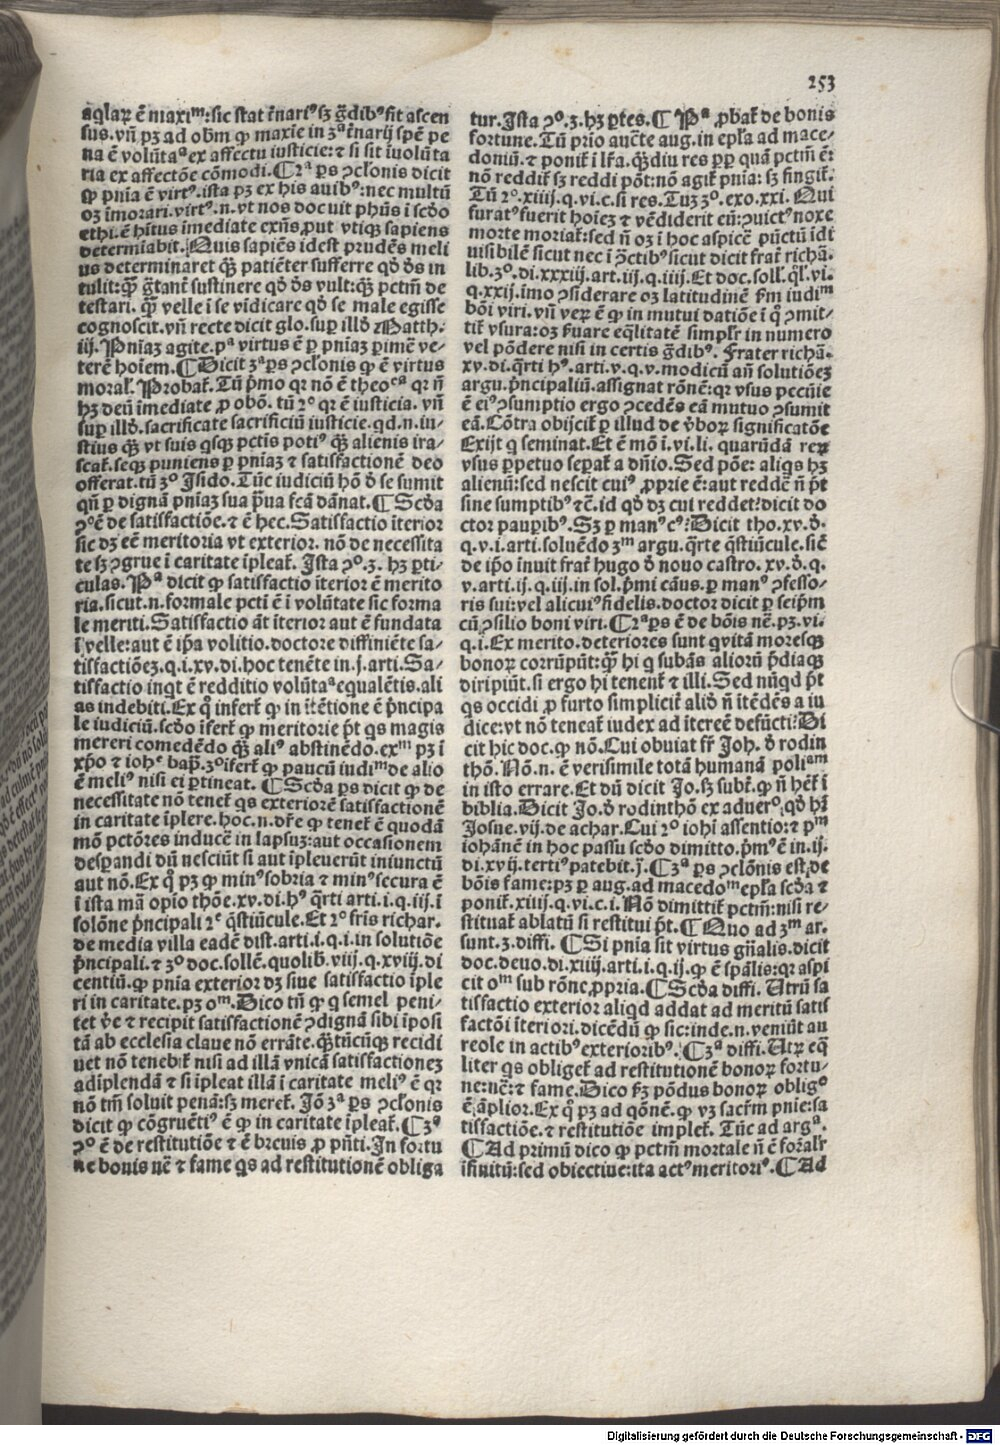 253
aqlaꝝ ē maximᵐ: sic stat t̄nariꝰ sꝫ g̃dibꝰ fit ascen
sus. vn̄ pꝫ ad obm ꝙ maxie in 3ª t̄narij spē pe
na ē volūtaª ex affectu iusticie: ⁊ si sit īuolūta
ria ex affectōe cōmodi. ¶ 2ª ꝑs ꝯclōnis dicit
ꝙ pnīa ē virtꝰ. ista pꝫ ex his auibꝰ: nec multū
oꝫ īmorari. virtꝰ. n. vt nos docuit phūs ī scd̄o
ethi. ē hītus īmediate exn̄s ꝓut vtiqꝫ sapiens
determīabit. Quis sapiēs idest prudēs meli
us determinaret qꝫ̄ patiēter sufferre qd̄ ds̄ in
tulit: qꝫ̄ g̃tant̄ sustinere qd̄ ds̄ vult: qꝫ̄ pctm̄ de
testari. qꝫ̄ velle ī se vīdicare qd̄ se male egisse
cognoscit. vn̄ recte dicit glo. suꝑ illd̄ Matth.
iij. Pnīaꝫ agite. pª virtus ē ꝑ pnīaꝫ ꝑimē ve-
terē hoīem. ¶ Dicit 3ª ꝑs ꝯclōnis ꝙ ē virtus
moral̄. Probat̄. Tū p̄mo qꝛ nō ē theoᶜª qꝛ n̄
hꝫ deū īmediate ꝓ obō. tū 2º qꝛ ē iusticia. vn̄
suꝑ illd̄. sacrificate sacrificiū iusticie. qd. n. iu-
stius qꝫ̄ vt suis qsqꝫ pctīs potiꝰ qꝫ̄ alienis ira-
scat̄. seqꝫ puniens ꝑ pnīaꝫ ⁊ satisfactionē deo
offerat. tū 3º Isido. Tūc iudiciū hō d̄ se sumit
qn̄ ꝑ dignā pnīaꝫ sua p̄ua fcā dānat. ¶ Scd̄a
ꝯº ē de satisfactiōe. ⁊ ē hec. Satisfactio īterior
sic dꝫ eē meritoria vt exterior. nō de necessita
te sꝫ ꝯgrue ī caritate īpleat̄. Ista ꝯº. 3. hꝫ ꝑti-
culas. Pª dicit ꝙ satisfactio īterior ē merito
ria. sicut. n. formale pcti ē ī volūtate sic forma
le meriti. Satisfactio āt īterior aut ē fundata
ī velle: aut ē ip̄a volitio. doctore diffiniēte sa-
tisfactiōeꝫ. q. i. xv. di. hoc tenēte in. j. arti. Sa-
tisfactio inqt ē redditio volūtaª equalētis. ali
as indebiti. Ex q̊ infert̄ ꝙ in ītētione ē p̄ncipa
le iudiciū. scd̄o īfert̄ ꝙ meritorie p̄t qs magis
mereri comedēdo qꝫ̄ aliꝰ abstinēdo. exᵐ pꝫ ī
xp̄o ⁊ iohᵉ bap̄. 3º īfert̄ ꝙ paucū iudiᵐ de alio
ē meliꝰ nisi ei ꝑtineat. ¶ Scd̄a ꝑs dicit ꝙ de
necessitate nō tenet̄ qs exteriorē satisfactionē
in caritate īplere. hoc. n. dr̄e ꝙ tenet̄ ē quodā
mō pctōres inducē in lapsuꝫ: aut occasionem
desꝑandi dū nesciūt si aut īpleuerūt iniunctū
aut nō. Ex q̊ pꝫ ꝙ minꝰ sobria ⁊ minꝰ secura ē
ī ista mā opio thōe. xv. di. hꝰ q̄rti arti. i. q. iij. ī
solōne p̄ncipali 2ᵉ q̄stiūcule. Et 2º fris richar.
de media villa eadē dist. arti. i. q. i. in solutiōe
p̄ncipali. ⁊ 3º doc. sollē. quolib. viij. q. xviij. di
centiū. ꝙ pnīa exterior dꝫ siue satisfactio īple
ri in caritate. pꝫ oᵐ. Dico tn̄ ꝙ q semel peni-
tet v̄e ⁊ recipit satisfactionē ꝯdignā sibi īposi
tā ab ecclesia claue nō errāte. qꝫ̄tūcūqꝫ recidi
uet nō tenebit̄ nisi ad illā vnicā satisfactioneꝫ
adīplendā ⁊ si īpleat illā ī caritate meliꝰ ē qꝛ
nō tm̄ soluit penā: sꝫ meret̄. Iō 3ª ꝑs ꝯclōnis
dicit ꝙ cōgruētiꝰ ē ꝙ in caritate īpleat̄. ¶ 3ª
ꝯº ē de restitutiōe ⁊ ē breuis ꝓ pn̄ti. In fortu
ne bonis nē ⁊ fame qs ad restitutionē obliga
tur. Ista ꝯº. 3. hꝫ ꝑtes. ¶ Pª ꝓbat̄ de bonis
fortune. Tū prīo auctē aug. in epl̄a ad mace-
doniū. ⁊ ponit̄ ī lr̄a. qꝫ̄diu res ꝓꝑ quā pctm̄ ē:
nō reddit̄ sꝫ reddi pōt: nō agit̄ pnīa: sꝫ fingit̄.
Tū 2º. xiiij. q. vi. c. si res. Tuꝫ 3º. exo. xxi. Qui
furatꝰ fuerit hoīeꝫ ⁊ vēdiderit eū: ꝯuictꝰ noxe
morte moriat̄: sed n̄ oꝫ ī hoc aspicē pūctū īdi
uisibilē sicut nec ī ꝯctibꝰ sicut dicit frat̄ richā.
lib. 3º. di. xxxiij. art. iij. q. iiij. Et doc. soll̄. ql̄. vi.
q. xxij. īmo ꝯsiderare oꝫ latitudinē fm iudiᵐ
bōi viri. vn̄ veꝝ ē ꝙ in mutui datiōe ī q ꝯmit-
tit̄ vsura: oꝫ ẜuare eq̄litatē simpl̄r in numero
vel pōdere nisi in certis g̃dibꝰ. Frater richā.
xv. di. q̄rti hꝰ. arti. v. q. v. modicū an̄ solutiōeꝫ
argu. p̄ncipaliū. assignat rōnē: qꝛ vsus peccūie
ē eiꝰ ꝯsumptio ergo ꝯcedēs eā mutuo ꝯsumit
eā. Cōtra obijcit̄ ꝑ illud de v̄boꝝ significatōe
Exijt q seminat. Et ē mō ī. vi. li. quarūdā reꝝ
vsus ꝑpetuo seꝑat̄ a dn̄io. Sed pōe: aliqs hꝫ
alienū: sed nescit cuiꝰ ꝓprie ē: aut reddē n̄ p̄t
sine sumptibꝰ ⁊c̄. id qd̄ dꝫ cui reddet? dicit do
ctor pauꝑibꝰ. Sꝫ ꝑ manꝰ cꝰ? Dicit tho. xv. d̄.
q. v. i. arti. soluēdo 3ᵐ argu. q̄rte q̄stiūcule. sicē
de ip̄o īnuit frat̄ hugo d̄ nouo castro. xv. d̄. q.
v. arti. ij. q. iij. in sol. p̄mi cāus. ꝑ manꝰ ꝯfesso-
ris sui: vel alicuiꝰ fidelis. doctor dicit ꝑ seip̄m
cū ꝯsilio boni viri. ¶ 2ª ꝑs ē de bōis nē. pꝫ. vi.
q. i. Ex merito. deteriores sunt q vitā moresqꝫ
bonoꝝ corrūpūt: qꝫ̄ hi q subās alioꝝ p̄diaqꝫ
diripiūt. si ergo hi tenent̄ ⁊ illi. Sed nūqd p̄t
qs occidi ꝓ furto simplicit̄ aliō n̄ ītēdēs a iu
dice: vt nō teneat̄ iudex ad īterecē defūcti? Di
cit hic doc. ꝙ nō. Cui obuiat fr̄ Joh. d̄ rodin
thō. Nō. n. ē verisimile totā humanā poliªᵐ
in isto errare. Et dū dicit Jo. sꝫ subt̄. ꝙ n̄ het̄ ī
biblia. Dicit Jo. d̄ rodinthō ex aduerº. qd̄ hr̄
Josue. vij. de achar. Cui 2º iohī assentio: ⁊ pᵐ
iohānē in hoc passu scd̄o dimitto. p̄mꝰ ē in. ij.
di. xvij. tertiꝰ patebit. j. ¶ 3ª ꝑs ꝯclōnis est. de
bōis fame: pꝫ ꝑ aug. ad macedoᵐ epl̄a scd̄a ⁊
ponit̄. xiiij. q. vi. c. i. Nō dimittit̄ pctm̄: nisi re-
stituat̄ ablatū si restitui p̄t. ¶ Quo ad 3ᵐ ar.
sunt. 3. diffi. ¶ Si pnīa sit virtus gn̄alis. dicit
doc. deuo. di. xiiij. arti. i. q. ij. ꝙ ē sp̄alis: qꝛ aspi
cit oᵐ sub rōne ꝓpria. ¶ Scd̄a diffi. Utrū sa
tisfactio exterior aliqd addat ad meritū satis
factōi īteriori. dicēdū ꝙ sic: inde. n. veniūt au
reole in actibꝰ exterioribꝰ. ¶ 3ª diffi. Utꝝ eq̄
liter qs obliget̄ ad restitutionē bonoꝝ fortu-
ne: nē: ⁊ fame. Dico ẜꝫ pōdus bonoꝝ obligº
ē āplior. Ex q̊ pꝫ ad qōnē. ꝙ vꝫ sacr̄m pnīe: sa
tisfactiōe. ⁊ restitutiōe implet̄. Tūc ad argª.
¶ Ad primū dico ꝙ pctm̄ mortale n̄ ē foꝛal̄r
īfinitū: sed obiectiue: ita actꝰ meritoriꝰ. ¶ Ad
Digitalisierung gefördert durch die Deutsche Forschungsgemeinschaft - DFG